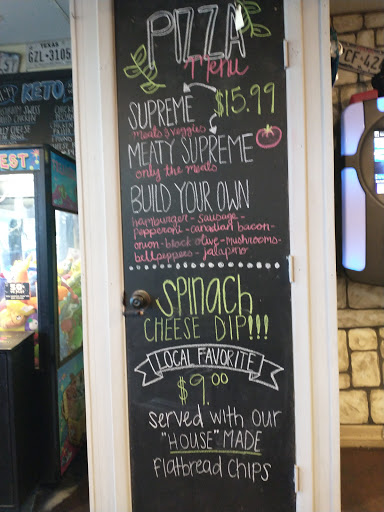 PIZZA
Menu
SUPREME
$15.99
meats & veggies
MEATY SUPREME
only the meats
BUILD YOUR OWN
hamburger - sausage -
pepperoni - canadian bacon -
onion - black olive - mushrooms -
bell peppers - jalapino
SPINACH
CHEESE DIP!!!
LOCAL FAVORITE
$9.00
served with our
"HOUSE" MADE
Flatbread CHIPS
TEXAS
GZL-3105
KETO
CF-42